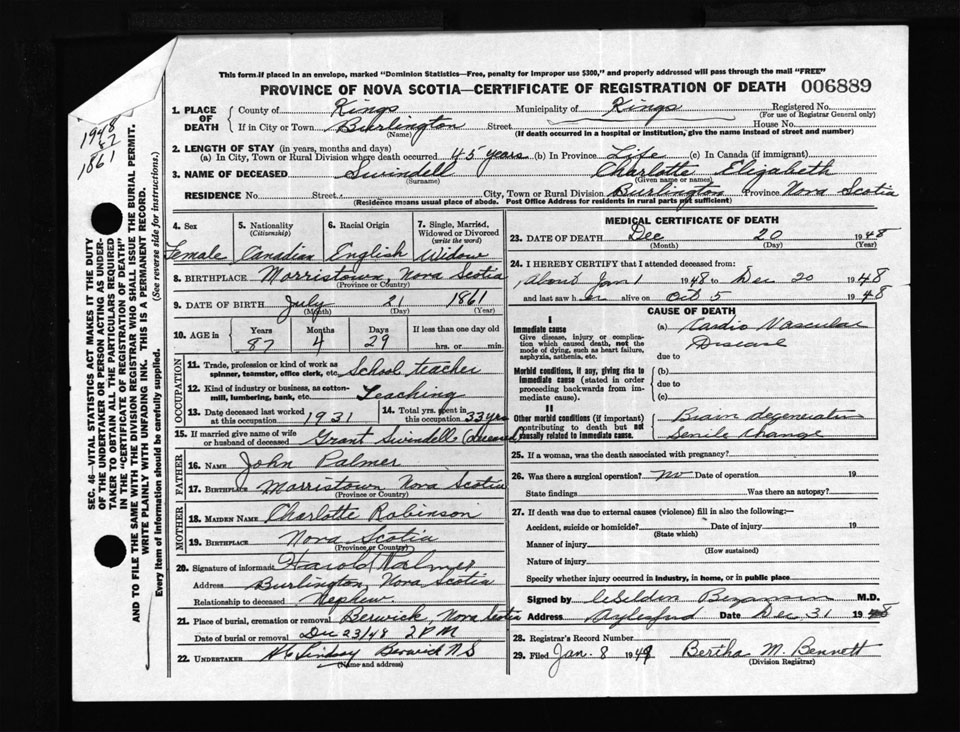 This form if placed in an envelope, marked "Dominion Statistics—Free, penalty for improper use $300," and properly addressed will pass through the mail "FREE"
PROVINCE OF NOVA SCOTIA—CERTIFICATE OF REGISTRATION OF DEATH 006889
1948
87
1861
SEC. 46—VITAL STATISTICS ACT MAKES IT THE DUTY
OF THE UNDERTAKER OR PERSON ACTING AS UNDER-
TAKER TO OBTAIN ALL THE PARTICULARS REQUIRED
IN THE "CERTIFICATE OF REGISTRATION OF DEATH"
AND TO FILE THE SAME WITH THE DIVISION REGISTRAR WHO SHALL ISSUE THE BURIAL PERMIT.
WRITE PLAINLY WITH UNFADING INK. THIS IS A PERMANENT RECORD.
Every item of information should be carefully supplied. (See reverse side for instructions.)
1. PLACE OF DEATH
County of Kings Municipality of Kings Registered No.
(For use of Registrar General only)
If in City or Town Burlington Street House No.
(Name) (If death occurred in a hospital or institution, give the name instead of street and number)
2. LENGTH OF STAY (in years, months and days)
(a) In City, Town or Rural Division where death occurred 45 years (b) In Province Life (c) In Canada (if immigrant)
3. NAME OF DECEASED Swindell Charlotte Elizabeth
(Surname) (Given name or names)
RESIDENCE No. Street City, Town or Rural Division Burlington Province Nova Scotia
(Residence means usual place of abode. Post Office Address for residents in rural parts not sufficient)
4. Sex 5. Nationality (Citizenship) 6. Racial Origin 7. Single, Married, Widowed or Divorced (write the word)
Female Canadian English Widow
8. BIRTHPLACE Morristown, Nova Scotia
(Province or Country)
9. DATE OF BIRTH July 21 1861
(Month) (Day) (Year)
10. AGE in Years Months Days If less than one day old
87 4 29 hrs. or min.
OCCUPATION
11. Trade, profession or kind of work as spinner, teamster, office clerk, etc. School teacher
12. Kind of industry or business, as cotton-mill, lumbering, bank, etc. Teaching
13. Date deceased last worked at this occupation 1931 14. Total yrs. spent in this occupation 33 yrs
15. If married give name of wife or husband of deceased Grant Swindell (deceased)
FATHER
16. NAME John Palmer
17. BIRTHPLACE Morristown Nova Scotia
(Province or Country)
MOTHER
18. MAIDEN NAME Charlotte Robinson
19. BIRTHPLACE Nova Scotia
(Province or Country)
20. Signature of informant Harold Palmer
Address Burlington, Nova Scotia
Relationship to deceased Nephew
21. Place of burial, cremation or removal Berwick, Nova Scotia
Date of burial or removal Dec 23/48 2 PM
22. UNDERTAKER Lindsay Berwick N S
(Name and address)
MEDICAL CERTIFICATE OF DEATH
23. DATE OF DEATH Dec 20 1948
(Month) (Day) (Year)
24. I HEREBY CERTIFY that I attended deceased from:
About Jan 1 1948 to Dec 20 1948
and last saw her alive on Oct 5 1948
CAUSE OF DEATH
I
Immediate cause (a) Cardio Vascular
Give disease, injury or complication which caused death, not the mode of dying, such as heart failure, asphyxia, asthenia, etc. Disease
due to
Morbid conditions, if any, giving rise to immediate cause (stated in order proceeding backwards from immediate cause). (b)
due to
(c)
II
Other morbid conditions (if important) contributing to death but not causally related to immediate cause. Brain degeneration
Senile Change
25. If a woman, was the death associated with pregnancy?
26. Was there a surgical operation? no Date of operation 19
State findings Was there an autopsy?
27. If death was due to external causes (violence) fill in also the following:
Accident, suicide or homicide? Date of injury 19
(State which)
Manner of injury
(How sustained)
Nature of injury
Specify whether injury occurred in industry, in home, or in public place
Signed by M.D.
Address Aylesford Date Dec 31 1948
28. Registrar's Record Number
29. Filed Jan. 8 1949 Bertha M. Bennett
(Division Registrar)